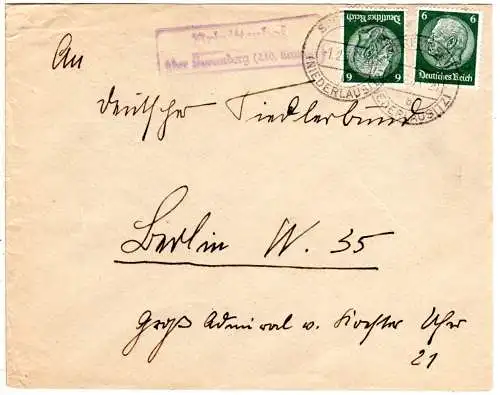 über Sorremberg (Ldb. 
6 6
Deutsches Reich Deutsches Reich
(NIEDERLAUSITZ)
An
Deutscher Siedlerbund
Berlin W. 35
Groß Admiral v. Koester Ufer
21